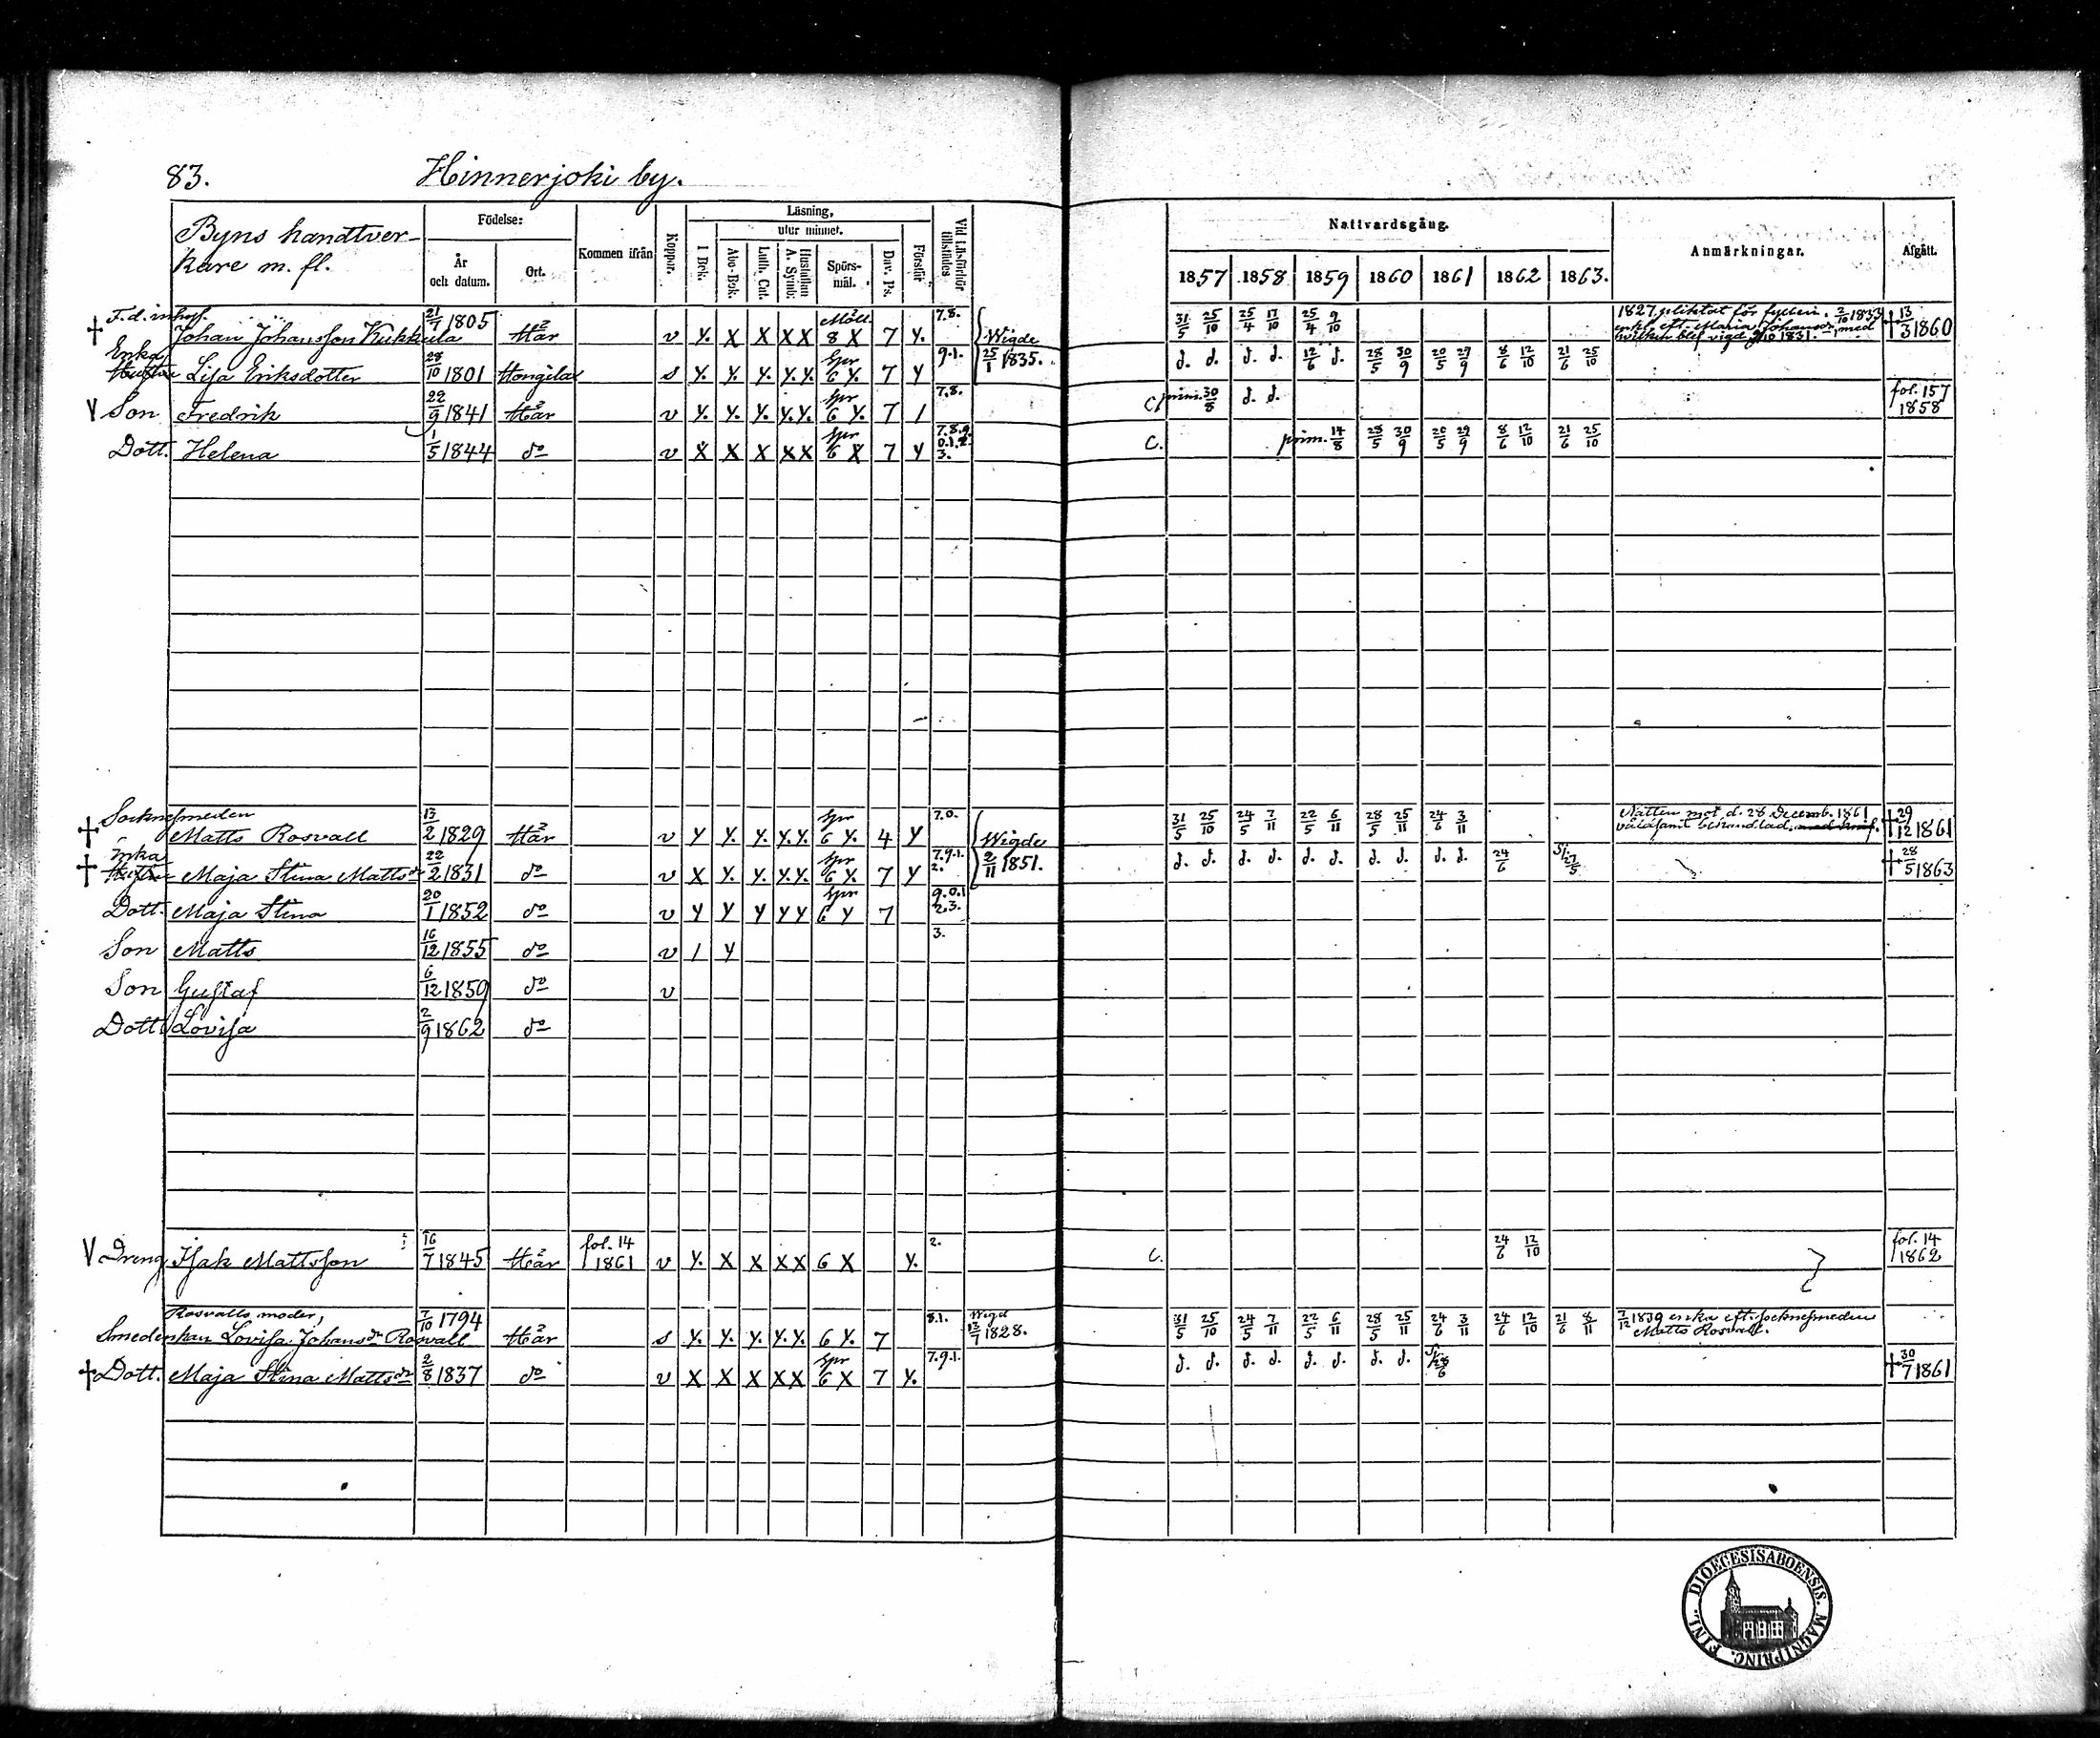 83. Hinnerjoki by.
Byns handtver-
kare m. fl.
Födelse:
År och datum.
Ort.
Kommen ifrån
Koppor.
Läsning,
utur minnet.
I Bok.
Abc-Bok.
Luth. Cat.
Hustaflan A. Symb:
Spörs-mål.
Dav. Ps.
Förstår
Vid Läsförhör tillstädes
Nattvardsgång.
1857 1858 1859 1860 1861 1862 1863.
Anmärkningar.
Afgått.
F. d. inhys.
† Johan Johansson Kukkaila 21/7 1805 Här v Y. X X X X Möll. 8 X 7 Y. 7.8. 31/5 25/10 25/4 17/10 25/4 9/10 † 13/3 1860
1827 pliktat för fylleri. 2/10 1833
enkl. eft. Maria Johansdr, med
hvilken blef vigd 1831.
Wigde 25/1 1835.
Enka
Hustru Lisa Eriksdotter 28/10 1801 Hongila s Y. Y. Y. Y. Y. Spr 6 Y. 7 Y 9.1. d. d. d. d. 12/6 d. 28/5 30/9 20/5 29/9 8/6 12/10 21/6 25/10
V Son Fredrik 22/9 1841 Här v Y. Y. Y. Y. Y. Spr 6 Y. 7 1 7.8. C. prim. 30/8 d. d. fol. 157 1858
Dott. Helena 1/5 1844 do v X X X X X Spr 6 X 7 Y 7.8.9. 0.1.2. 3. C. prim. 14/8 28/5 30/9 20/5 29/9 8/6 12/10 21/6 25/10
Socknesmeden
† Matts Rosvall 13/2 1829 Här v Y Y. Y. Y. Y. Spr 6 Y. 4 Y 7.0. 31/5 25/10 24/5 7/11 22/5 6/11 28/5 25/11 24/6 3/11 † 29/12 1861
Natten mot d. 28 Decemb. 1861
våldsamt behandlad.
Wigde 2/11 1851.
Enka
† Hustru Maja Stina Mattsdr 22/2 1831 do v X Y. Y. Y. Y. Spr 6 Y. 7 Y 7.9.1. 2. d. d. d. d. d. d. d. d. d. d. 24/6 † 28/5 1863
Dott. Maja Stina 20/1 1852 do v Y Y Y Y Y Spr 6 Y 7 9.0.1 2.3.
Son Matts 16/12 1855 do v 1 Y 3.
Son Gustaf 6/12 1859 do v
Dott. Lovisa 2/9 1862 do
V Dreng Isak Mattsson 16/7 1845 Här fol. 14 1861 v Y. X X X X 6 X Y. 2. C. 24/6 12/10 fol. 14 1862
Rosvalls moder,
Smedenkan Lovisa Johansdr Rosvall 7/10 1794 Här s Y. Y. Y. Y. Y. 6 Y. 7 8.1. Wigd 13/7 1828. 31/5 25/10 24/5 7/11 22/5 6/11 28/5 25/11 24/6 3/11 24/6 12/10 21/6 8/11
7/12 1839 enka eft. socknesmeden
Matts Rosvall.
† Dott. Maja Stina Mattsdr 2/8 1837 do v X X X X X Spr 6 X 7 Y. 7.9.1. d. d. d. d. d. d. d. d. † 30/7 1861
DIOECESIS ABOENSIS. MAGNI PRINC. FINL.